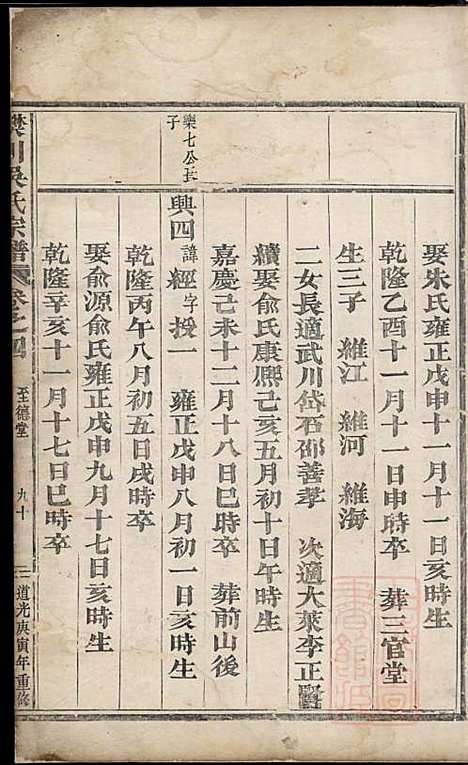 娶朱氏雍正戊申十一月十一日亥時生
乾隆乙酉十一月十一日申時卒 葬三官堂
生三子 維江 維河 維海
二女長適武川岱石邵善孝 次適大萊李正賢
續娶俞氏康熙己亥五月初十日午時生
嘉慶己未十二月十八日巳時卒 葬前山後
欒七公長子
興四諱經字援一 雍正戊申八月初一日亥時生
乾隆丙午八月初五日戌時卒
娶俞源俞氏雍正戊申九月十七日亥時生
乾隆辛亥十一月十七日巳時卒
川吳氏宗譜 卷之四 至德堂 九十 道光庚寅年重修